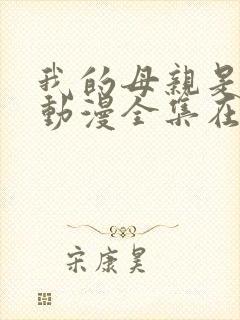 我的母親是
動漫全集在
宋康昊